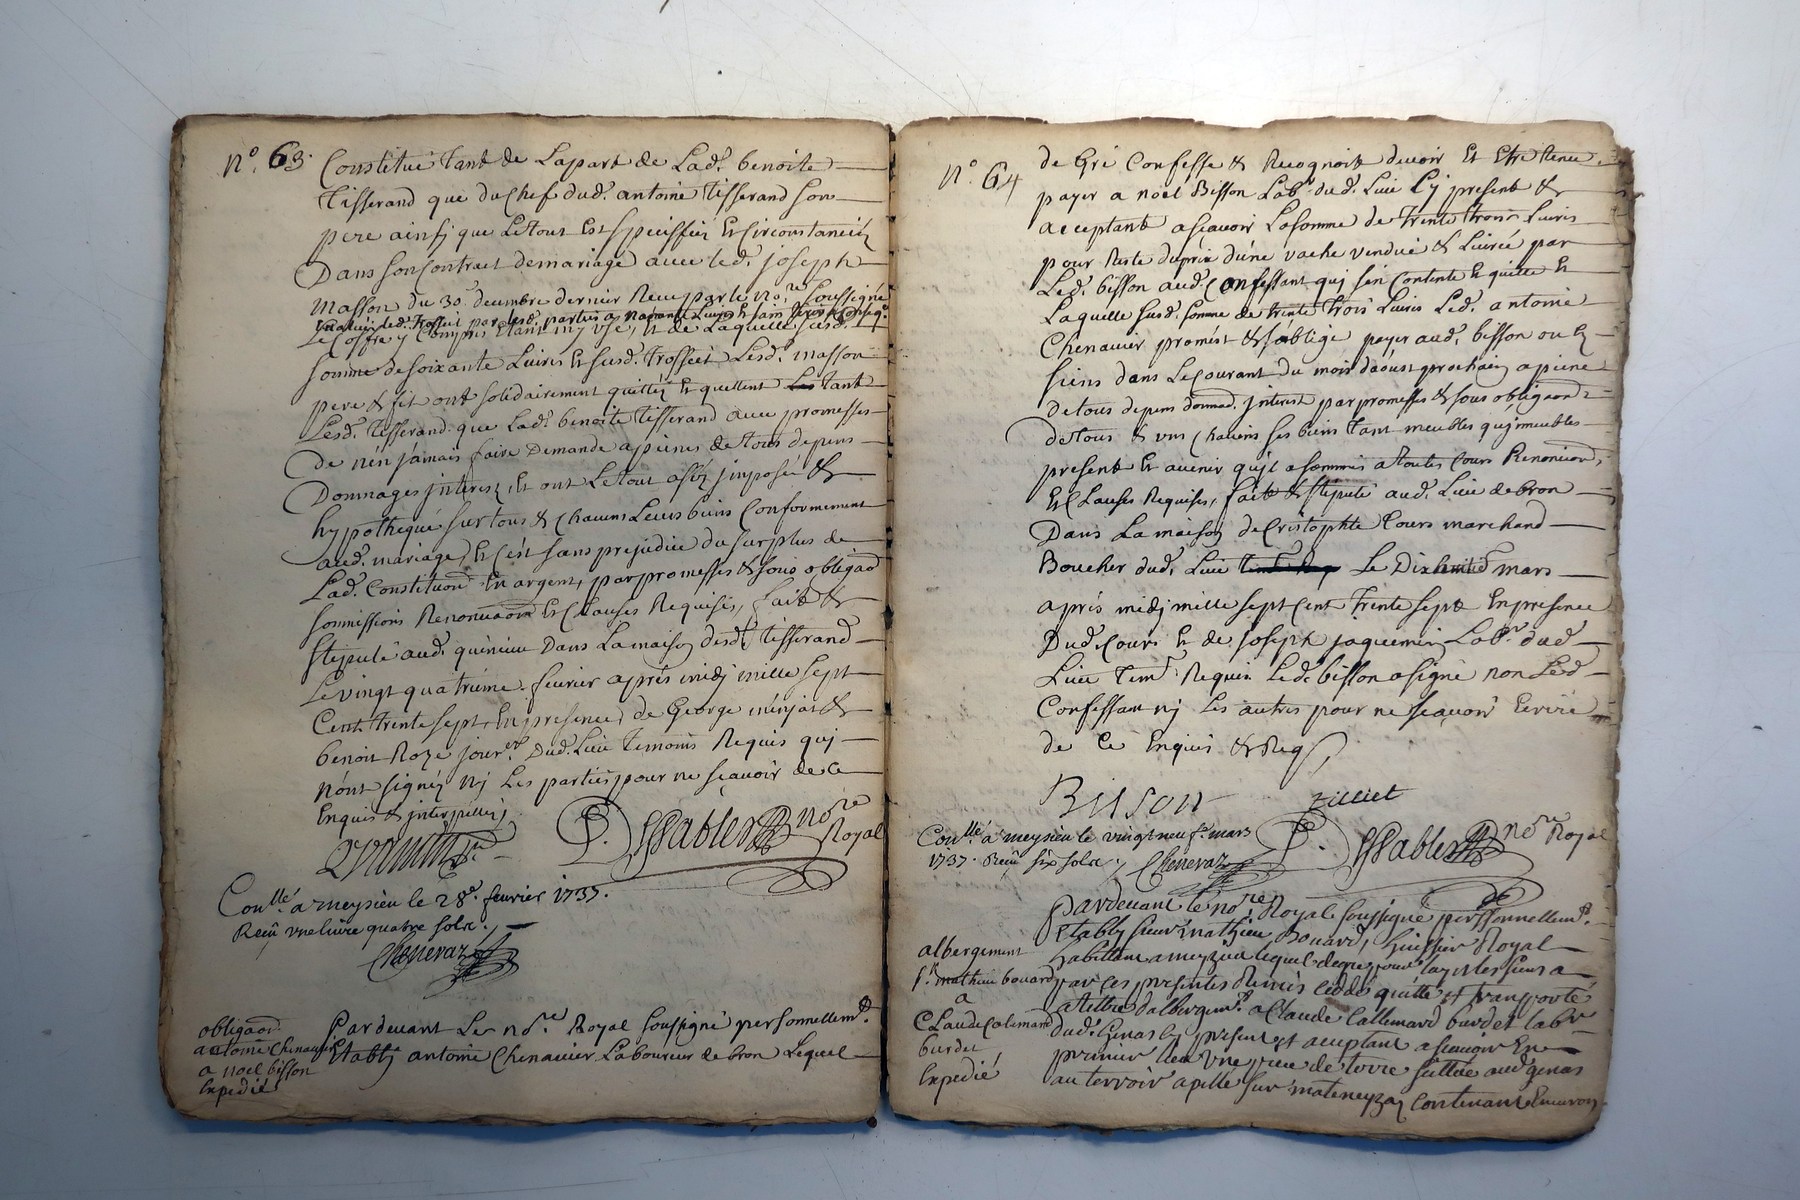 N.º 63.
Constitué tant de Lapart de Lad.e benoite
Tisserand que du Chef dud. antoine Tisserand son
pere ainsy que Le tout Est speciffié Et Circonstancié
Dans son Contract de mariage avec led. joseph
Masson du 30.e decembre dernier Receu par le no.re soussigné
Le Coffre y Compris Et de Laquelle susd.
somme de soixante Livres Et susd. Trossel Lesd. masson
pere & fil ont solidairement quitté Et quittent tant
Led. Tisserand que Lad.e benoite Tisserand avec promesses
de n'en jamais faire Demande a peines de tous depens
Dommages jnterest, Et ont Le tout assis jmposé &
hypothequé sur tous & Chacuns Leurs biens Conformement
aud. mariage, Et c'est sans prejudice du surplus de
Lad. Constitution En argent, par promesses & sous obligaon
soumissions Renonciaons Et Clauses Requises, fait &
stipulé aud. Dans La maison desd. Tisserand
Le vingt quatrieme fevrier aprés midj mille sept
Cent trente sept, En presence de George &
benoit Roze jour.er Dud. Lieu Temoins Requis quj
n'ont signéz nj Les parties pour ne sçavoir de ce
Enquis & jnterpellez
P. no.re Royal
Con.llé a meysieu le 28.e fevrier 1737.
Receu une livre quatre sols.
Chenevaz
obligaon
antoine Chenavier
a noel bisson
Expedié
Pardevant Le no.re Royal soussigné personnellem.t
Etably antoine Chenavier Laboureur de bron Lequel
N.º 64
de Gré Confesse & Recognoit devoir Et Etre tenu
payer a noel Bisson Lab.r dud. Lieu Cy present &
acceptant a sçavoir La somme de trente trois Livres
pour Reste du prix d'une vache vendue & Livrée par
Led. bisson aud. Confessant quj s'en Contente Et quitte Et
Laquelle susd. somme de trente trois Livres Led. antoine
Chenavier promést & s'oblige payer aud. bisson ou Es
siens dans Le Courant du mois d'aoust prochain a peine
de tous depens dommad. jnterest par promesses & sous obligaon
de tous & uns Chacuns ses biens tant meubles qu'jmeubles
present Et avenir qu'jl a soumis a toutes Cours Renonciaon,
Et Clauses Requises, fait & stipulé aud. Lieu de bron
Dans La maison de Cristophle Cours marchand
Boucher dud. Lieu Le Dix mars
aprés midj mille sept Cent trente sept En presence
Dud. Cours Et de joseph jaquemin Lab.r dud.
Lieu Tem.s Requis Led. bisson a signé non Led.
Confessant nj Les autres pour ne sçavoir Ecrire
de Ce Enquis & Req.
BISSON
P. no.re Royal
Con.llé a meysieu le vingt neuf.e mars
1737. Receu six sols.
Chenevaz
albergement
s.r mathieu bouard
a
CLaude Calemard
burdet
Expedié
Pardevant le no.re Royal soussigné personnellem.t
Etably sieur mathieu Bouard, huissier Royal
habitant a meyzieu lequel de gré pour luy et les siens a
par ces presentes Remis cedde quitte et transporte
a tiltre d'albergem.t a Claude Callemard burdet lab.r
dud. Genas Cy present et acceptant a sçavoir En
premier lieu une piece de terre scittuée aud. genas
au terroir apellé sur mateneyzay Contenant Environ